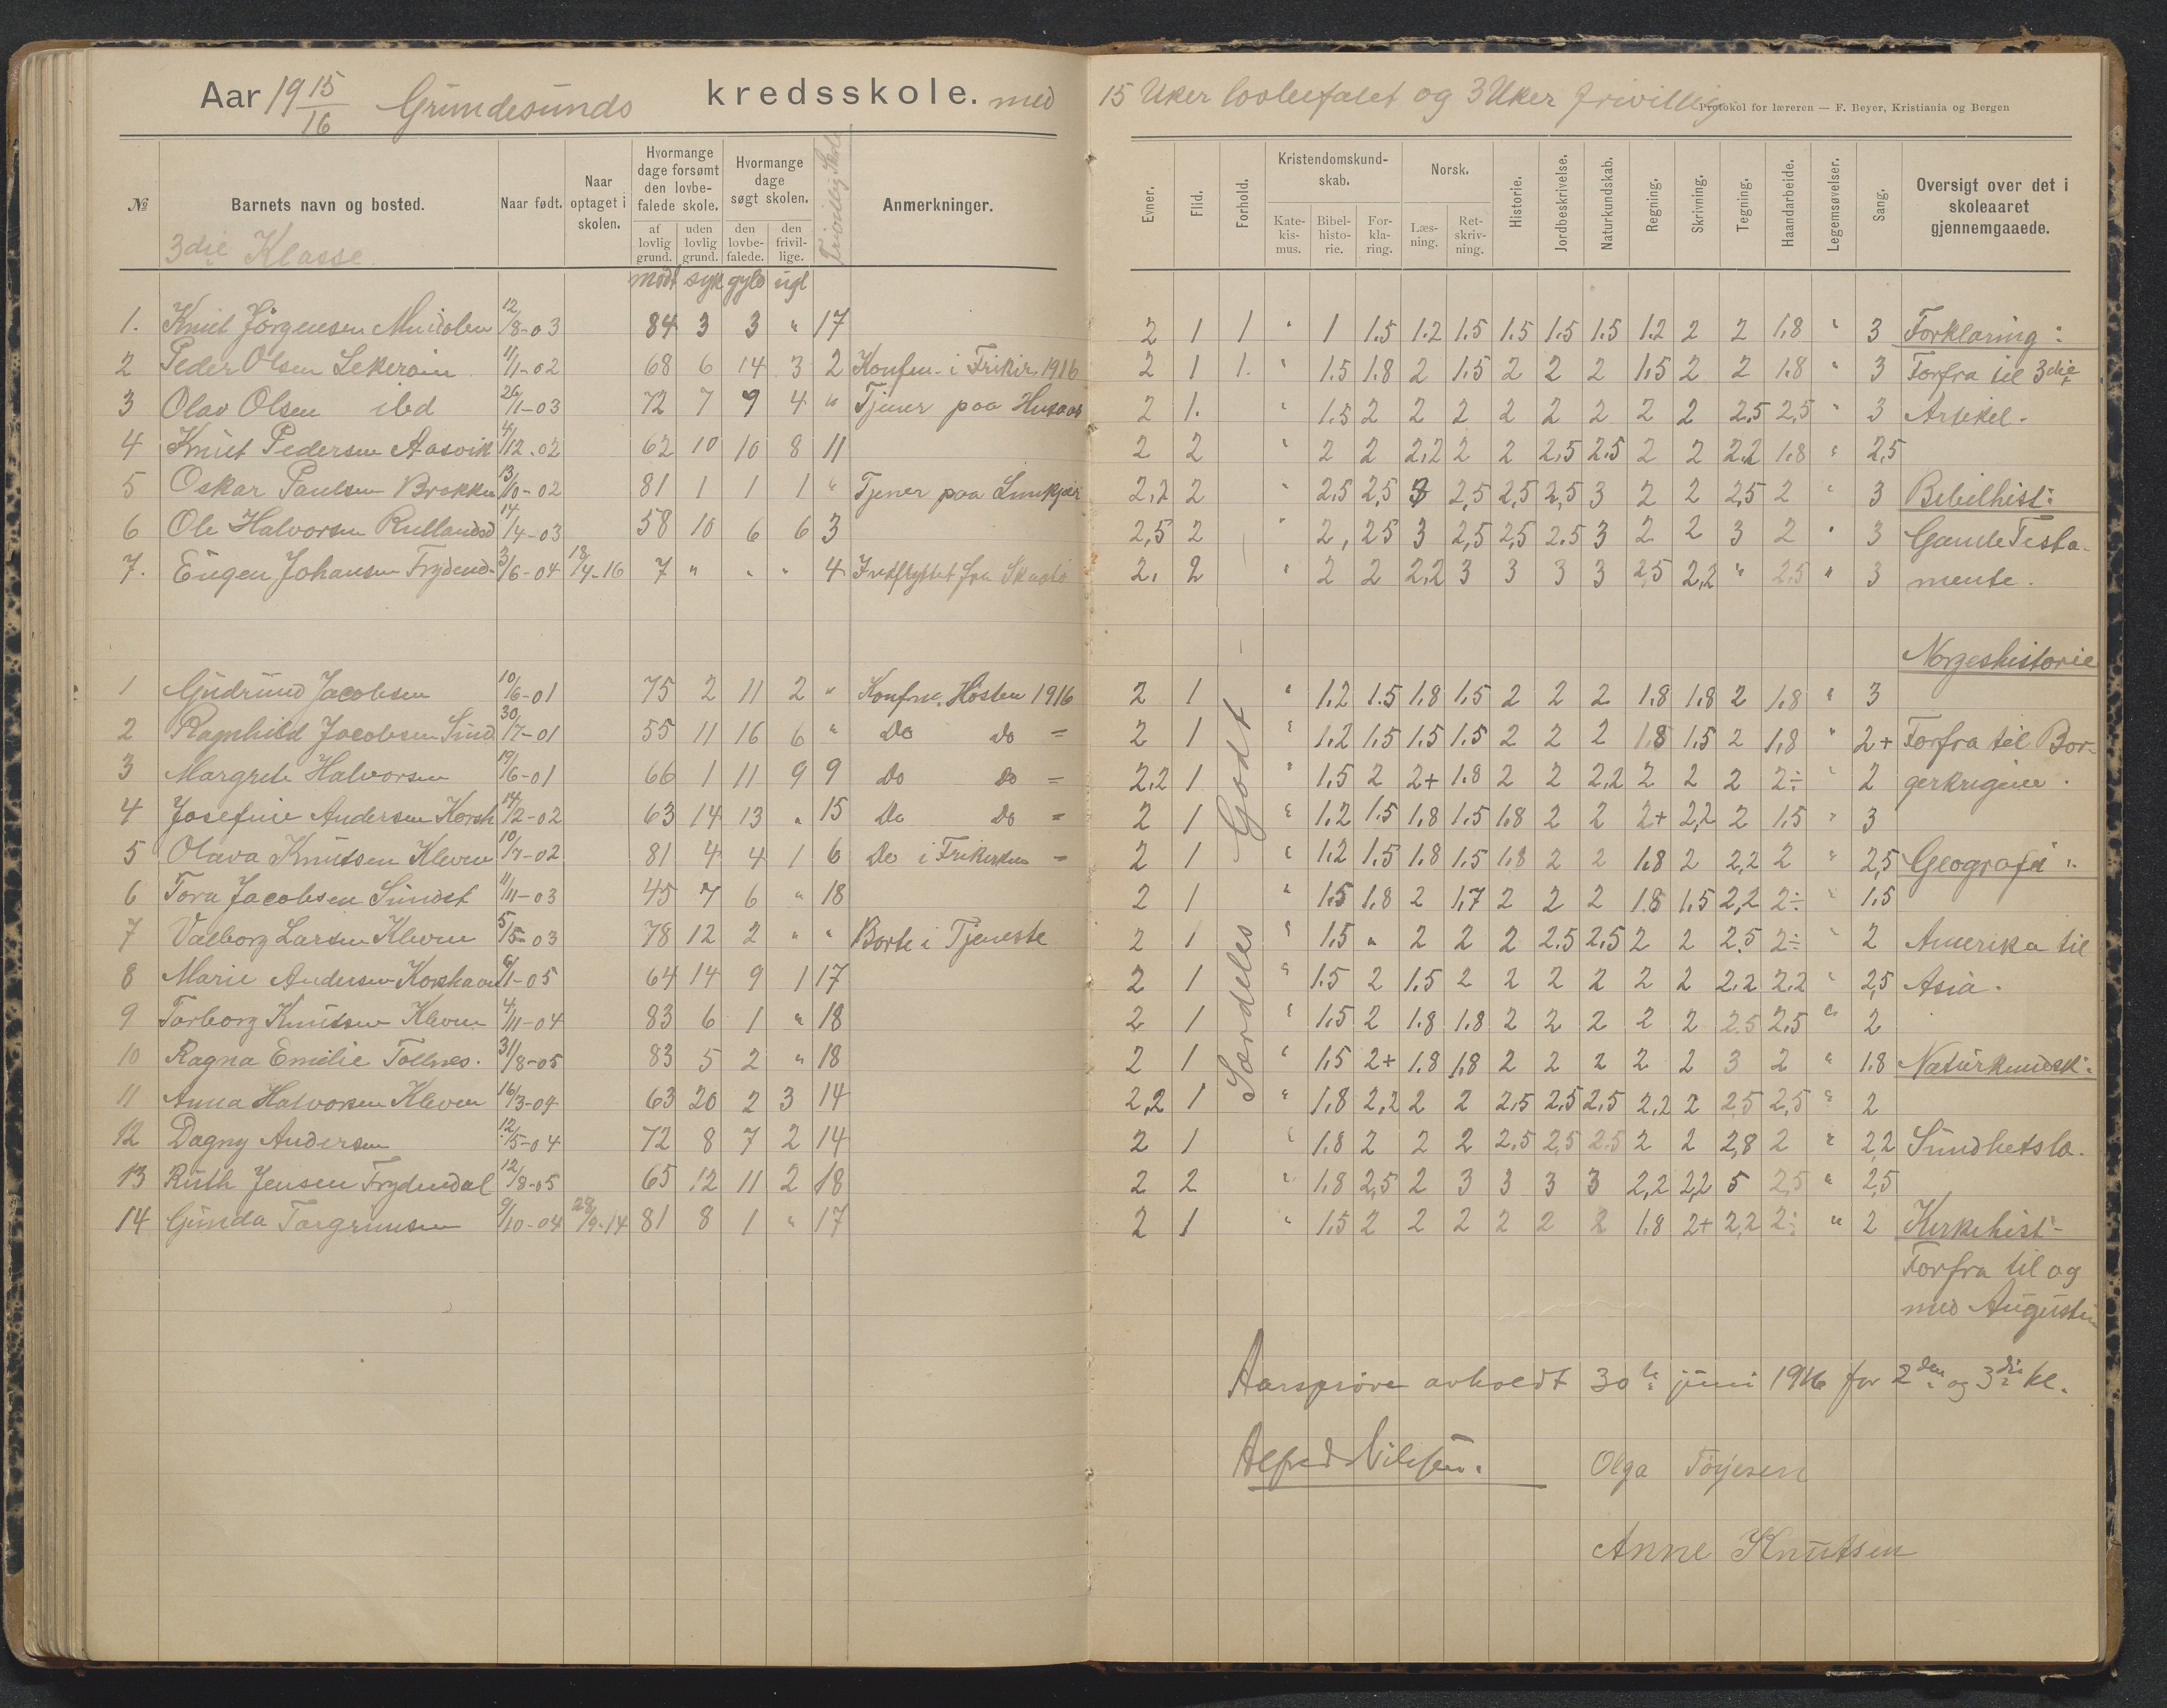 Aar 19 15/16 Grundesunds kredsskole. med 15 Uker lovbefalet og 3 Uker frivillig
Protokol for læreren — F. Beyer, Kristiania og Bergen
№ Barnets navn og bosted. Naar født. Naar optaget i skolen. Hvormange dage forsømt den lovbefalede skole. af lovlig grund. uden lovlig grund. Hvormange dage søgt skolen. den lovbefalede. den frivillige. Frivillig Skole Anmerkninger. Evner. Flid. Forhold. Kristendomskundskab. Katekismus. Bibelhistorie. Forklaring. Norsk. Læsning. Retskrivning. Historie. Jordbeskrivelse. Naturkundskab. Regning. Skrivning. Tegning. Haandarbeide. Legemsøvelser. Sang. Oversigt over det i skoleaaret gjennemgaaede.
3die Klasse.
mødt syk gyld ugl
1. Knut Jörgensen 12/8-03 84 3 3 " 17 2 1 1 " 1 1.5 1.2 1.5 1.5 1.5 1.5 1.2 2 2 1.8 " 3 Forklaring:
2 Peder Olsen 11/1-02 68 6 14 3 2 Konfm. i Frikir. 1916 2 1 1. " 1.5 1.8 2 1.5 2 2 2 1.5 2 2 1.8 " 3 Forfra til 3die
3 Olav Olsen ibd 26/1-03 72 7 9 4 " Tjener paa Husaas 2 1. " 1.5 2 2 2 2 2 2 2 2 2.5 2,5 " 3 Artikel.
4 Knut Pedersen Aasvik 4/12.02 62 10 10 8 11 2 2 " 2 2 2,2 2 2 2,5 2.5 2 2 2.2 1.8 " 2,5
5 Oskar Paulsen Brokken 13/10-02 81 1 1 1 " Tjener paa 2,2 2 " 2,5 2,5 3 2,5 2,5 2,5 3 2 2 2,5 2 " 3 Bibelhist:
6 Ole Halvorsen 14/4-03 58 10 6 6 3 2,5 2 " 2, 2.5 3 2,5 2,5 2.5 3 2 2 3 2 " 3 Gamle Testa-
7. Eugen Johansen Frydend. 3/6-04 18/4-16 7 " " " 4 Indflyttet fra 2. 2 " 2 2 2,2 3 3 3 3 2,5 2,2 " 2,5 " 3 mente.
Norgeshistorie
1 Gudrund Jacobsen 10/6-01 75 2 11 2 " Konfm. Høsten 1916 2 1 " 1.2 1.5 1.8 1.5 2 2 2 1.8 1.8 2 1.8 " 3
2 Ragnhild Jacobsen Sund 30/7-01 55 11 16 6 " Do do = 2 1 " 1.2 1.5 1.5 1.5 2 2 2 1.8 1.5 2 1.8 " 2+ Forfra til Bor-
3 Margrete Halvorsen 19/6-01 66 1 11 9 9 Do do = 2,2 1 " 1.5 2 2+ 1.8 2 2 2,2 2 2 2 2÷ " 2 gerkrigine.
4 Josefine Andersen Korsh 14/2-02 63 14 13 " 15 Do do = 2 1 " 1.2 1.5 1.8 1.5 1.8 2 2 2+ 2,2 2 1.5 " 3
5 Olava Knutsen Kleven 10/7-02 81 4 4 1 6 Do i Frikirken = 2 1 " 1.2 1.5 1.8 1.5 1.8 2 2 1.8 2 2,2 2 " 2,5 Geografi:
6 Tora Jacobsen Sundet 11/11-03 45 7 6 " 18 2 1 " 1.5 1.8 2 1.7 2 2 2 1.8 1.5 2,2 2÷ " 1.5
7 Valborg Larsen Kleven 5/5-03 78 12 2 " " Borte i Tjeneste 2 1 " 1.5 " 2 2 2 2.5 2.5 2 2 2.5 2÷ " 2 Amerika til
8 Marie Andersen Korshavn 6/1-05 64 14 9 1 17 2 1 " 1.5 2 1.5 2 2 2 2 2 2 2.2 2.2 " 2,5 Asia.
9 Torborg Knutsen Kleven 4/11-04 83 6 1 " 18 2 1 " 1.5 2 1.8 1.8 2 2 2 2 2 2.5 2,5 " 2
10 Ragna Emilie Tollnes. 31/8-05 83 5 2 " 18 2 1 " 1.5 2+ 1.8 1.8 2 2 2 2 2 3 2 " 1.8 Naturkundsk:
11 Anna Halvorsen Kleven 16/3-04 63 20 2 3 14 2,2 1 " 1.8 2,2 2 2 2.5 2.5 2.5 2,2 2 2.5 2,5 " 2
12 Dagny Andersen 12/5-04 72 8 7 2 14 2 1 " 1.8 2 2 2 2.5 2,5 2.5 2 2 2,8 2 " 2,2 Sundhetslæ.
13 Ruth Jensen Frydendal 12/8-05 65 12 11 2 18 2 2 " 1.8 2,5 2 3 3 3 3 2,2 2,2 5 2,5 " 2,5
14 Gunda Torgrimsen 9/10-04 28/9-14 81 8 1 " 17 2 1 " 1.5 2 2 2 2 2 2 1.8 2+ 2,2 2÷ " 2 Kirkehist-
Særdeles Godt
Forfra til og
med Augustin
Aarsprøve avholdt 30te juni 1916 for 2den og 3die kl.
Alfred Nilsen. Olga Törjesen
Anne Knutsen